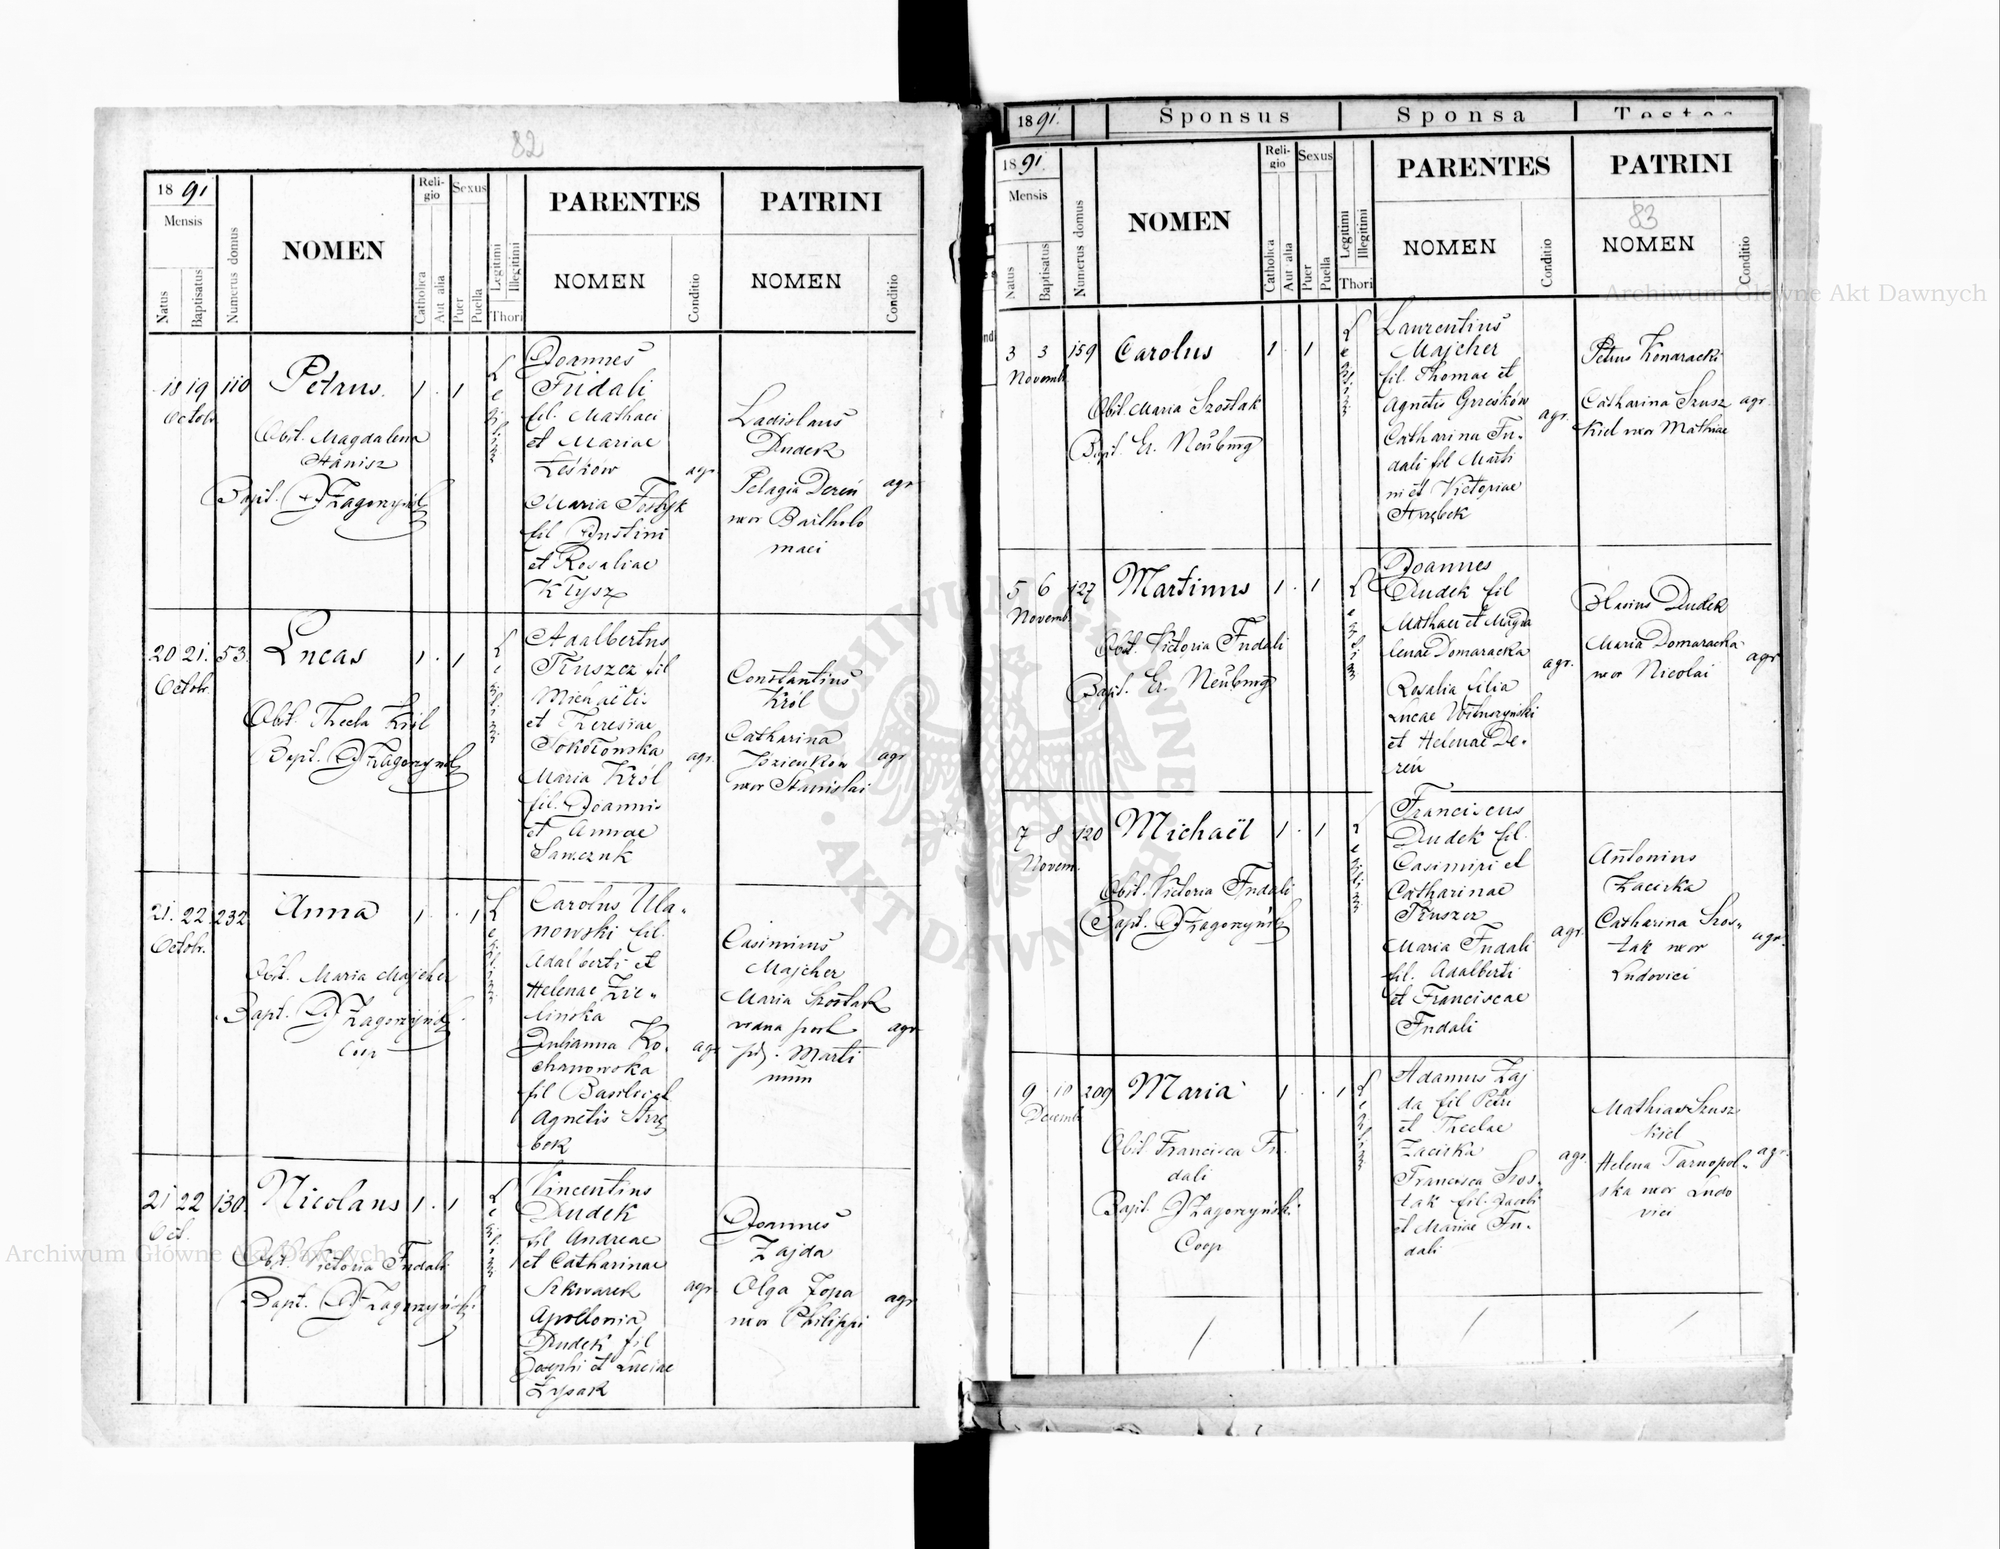 82
18 91
Mensis
Natus
Baptisatus
Numerus domus
NOMEN
Religio
Catholica
Aut alia
Sexus
Puer
Puella
Legitimi
Illegitimi
Thori
PARENTES
NOMEN
Conditio
PATRINI
NOMEN
Conditio
18 19 110 Petrus. 1 . 1
Octobr.
Obst. Magdalena
Stanisz
Bapt. JZagorzyński
Legitimi
Joannes
Fudali
fil. Mathaei
et Mariae
Leśków
agr.
Maria Fostyk
fil Justini
et Rosaliae
Kłysz
Ladislaus
Dudek
Pelagia Dereń
uxor Bartholo
maei
agr.
20 21. 53. Lucas 1 . 1
Octobr.
Obst. Thecla Król
Bapt. JZagorzyński
Legitimi
Adalbertus
Truszcz fil
Michaëlis
et Theresiae
Sokołowska
Maria Król
fil. Joannis
et Annae
Sawczuk
agr.
Constantius
Król
Catharina
uxor Stanislai
agr
21. 22. 232 Anna 1 . . 1
Octobr.
Obst. Maria Majcher
Bapt. JZagorzyński
Legitimi
Carolus Ula-
nowski fil.
Adalberti et
Helenae Zie-
linska
Julianna Ko-
chanowska
fil Basilii et
Agnetis Strzę
bek
agr
Casimirus
Majcher
Maria Szostak
agr
21 22 130. Nicolaus 1 . 1
Oct.
Obst. Victoria Fudali
Bapt. JZagorzyński
Legitimi
Vincentius
Dudek
fil Andreae
et Catharinae
Szkwarek
Apollonia
Dudek fil
Josephi et Luciae
Łysak
agr.
Joannes
Zajda
Olga Zopa
uxor Philippi
agr
18 91. Sponsus Sponsa Testes
18 91.
Mensis
Natus
Baptisatus
Numerus domus
NOMEN
Religio
Catholica
Aut alia
Sexus
Puer
Puella
Legitimi
Illegitimi
Thori
PARENTES
NOMEN
Conditio
PATRINI
83
NOMEN
Conditio
3 3 159 Carolus 1 . 1
Novemb.
Obst. Maria Szostak
Bapt. Er. Neuburg
Legitimi
Laurentius
Majcher
fil. Thomae et
Agnetis Greśków
Catharina Fu-
dali fil Marti
ni et Victoriae
Strzębek
agr.
Petrus Konaracki
Catharina Szusz
kiel uxor Mathiae
agr.
5 6 127 Martinus 1 . 1
Novemb.
Obst. Victoria Fudali
Bapt. Er. Neuburg
Legitimi
Joannes
Dudek fil
Mathaei et Magda
lenae Domaracka
Rosalia filia
Lucae Wołuszyński
et Helenae De-
reń
agr.
Blasius Dudek
Maria Domaracka
uxor Nicolai
agr
7 8 120 Michaël 1 . 1
Novem.
Obst. Victoria Fudali
Bapt. JZagorzyński
Legitimi
Franciscus
Dudek fil.
Casimiri et
Catharinae
Truszcz
Maria Fudali
fil. Adalberti
et Franciscae
Fudali
agr.
Antonius
Zacirka
Catharina Szos-
tak uxor
Ludovici
agr.
9 10 209 Maria 1 . . 1
Decemb.
Obst Francisca Fu-
dali
Bapt. JZagorzyński
Coop
Legitimi
Adamus Zaj
da fil Petri
et Theclae
Zacirka
Francisca Szos-
tak fil. Jacobi
et Mariae Fu-
dali
agr.
Mathias Szusz
kiel
Helena Tarnopol-
ska uxor Ludo
vici
agr.
Archiwum Główne Akt Dawnych
Archiwum Główne Akt Dawnych
ARCHIWUM GŁÓWNE · AKT DAWNYCH ·